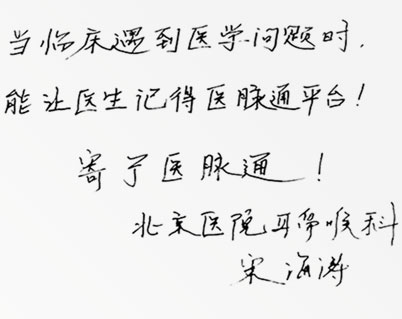 当临床遇到医学问题时，
能让医生记得医脉通平台！
寄予医脉通！
北京医院耳鼻喉科
宋海涛